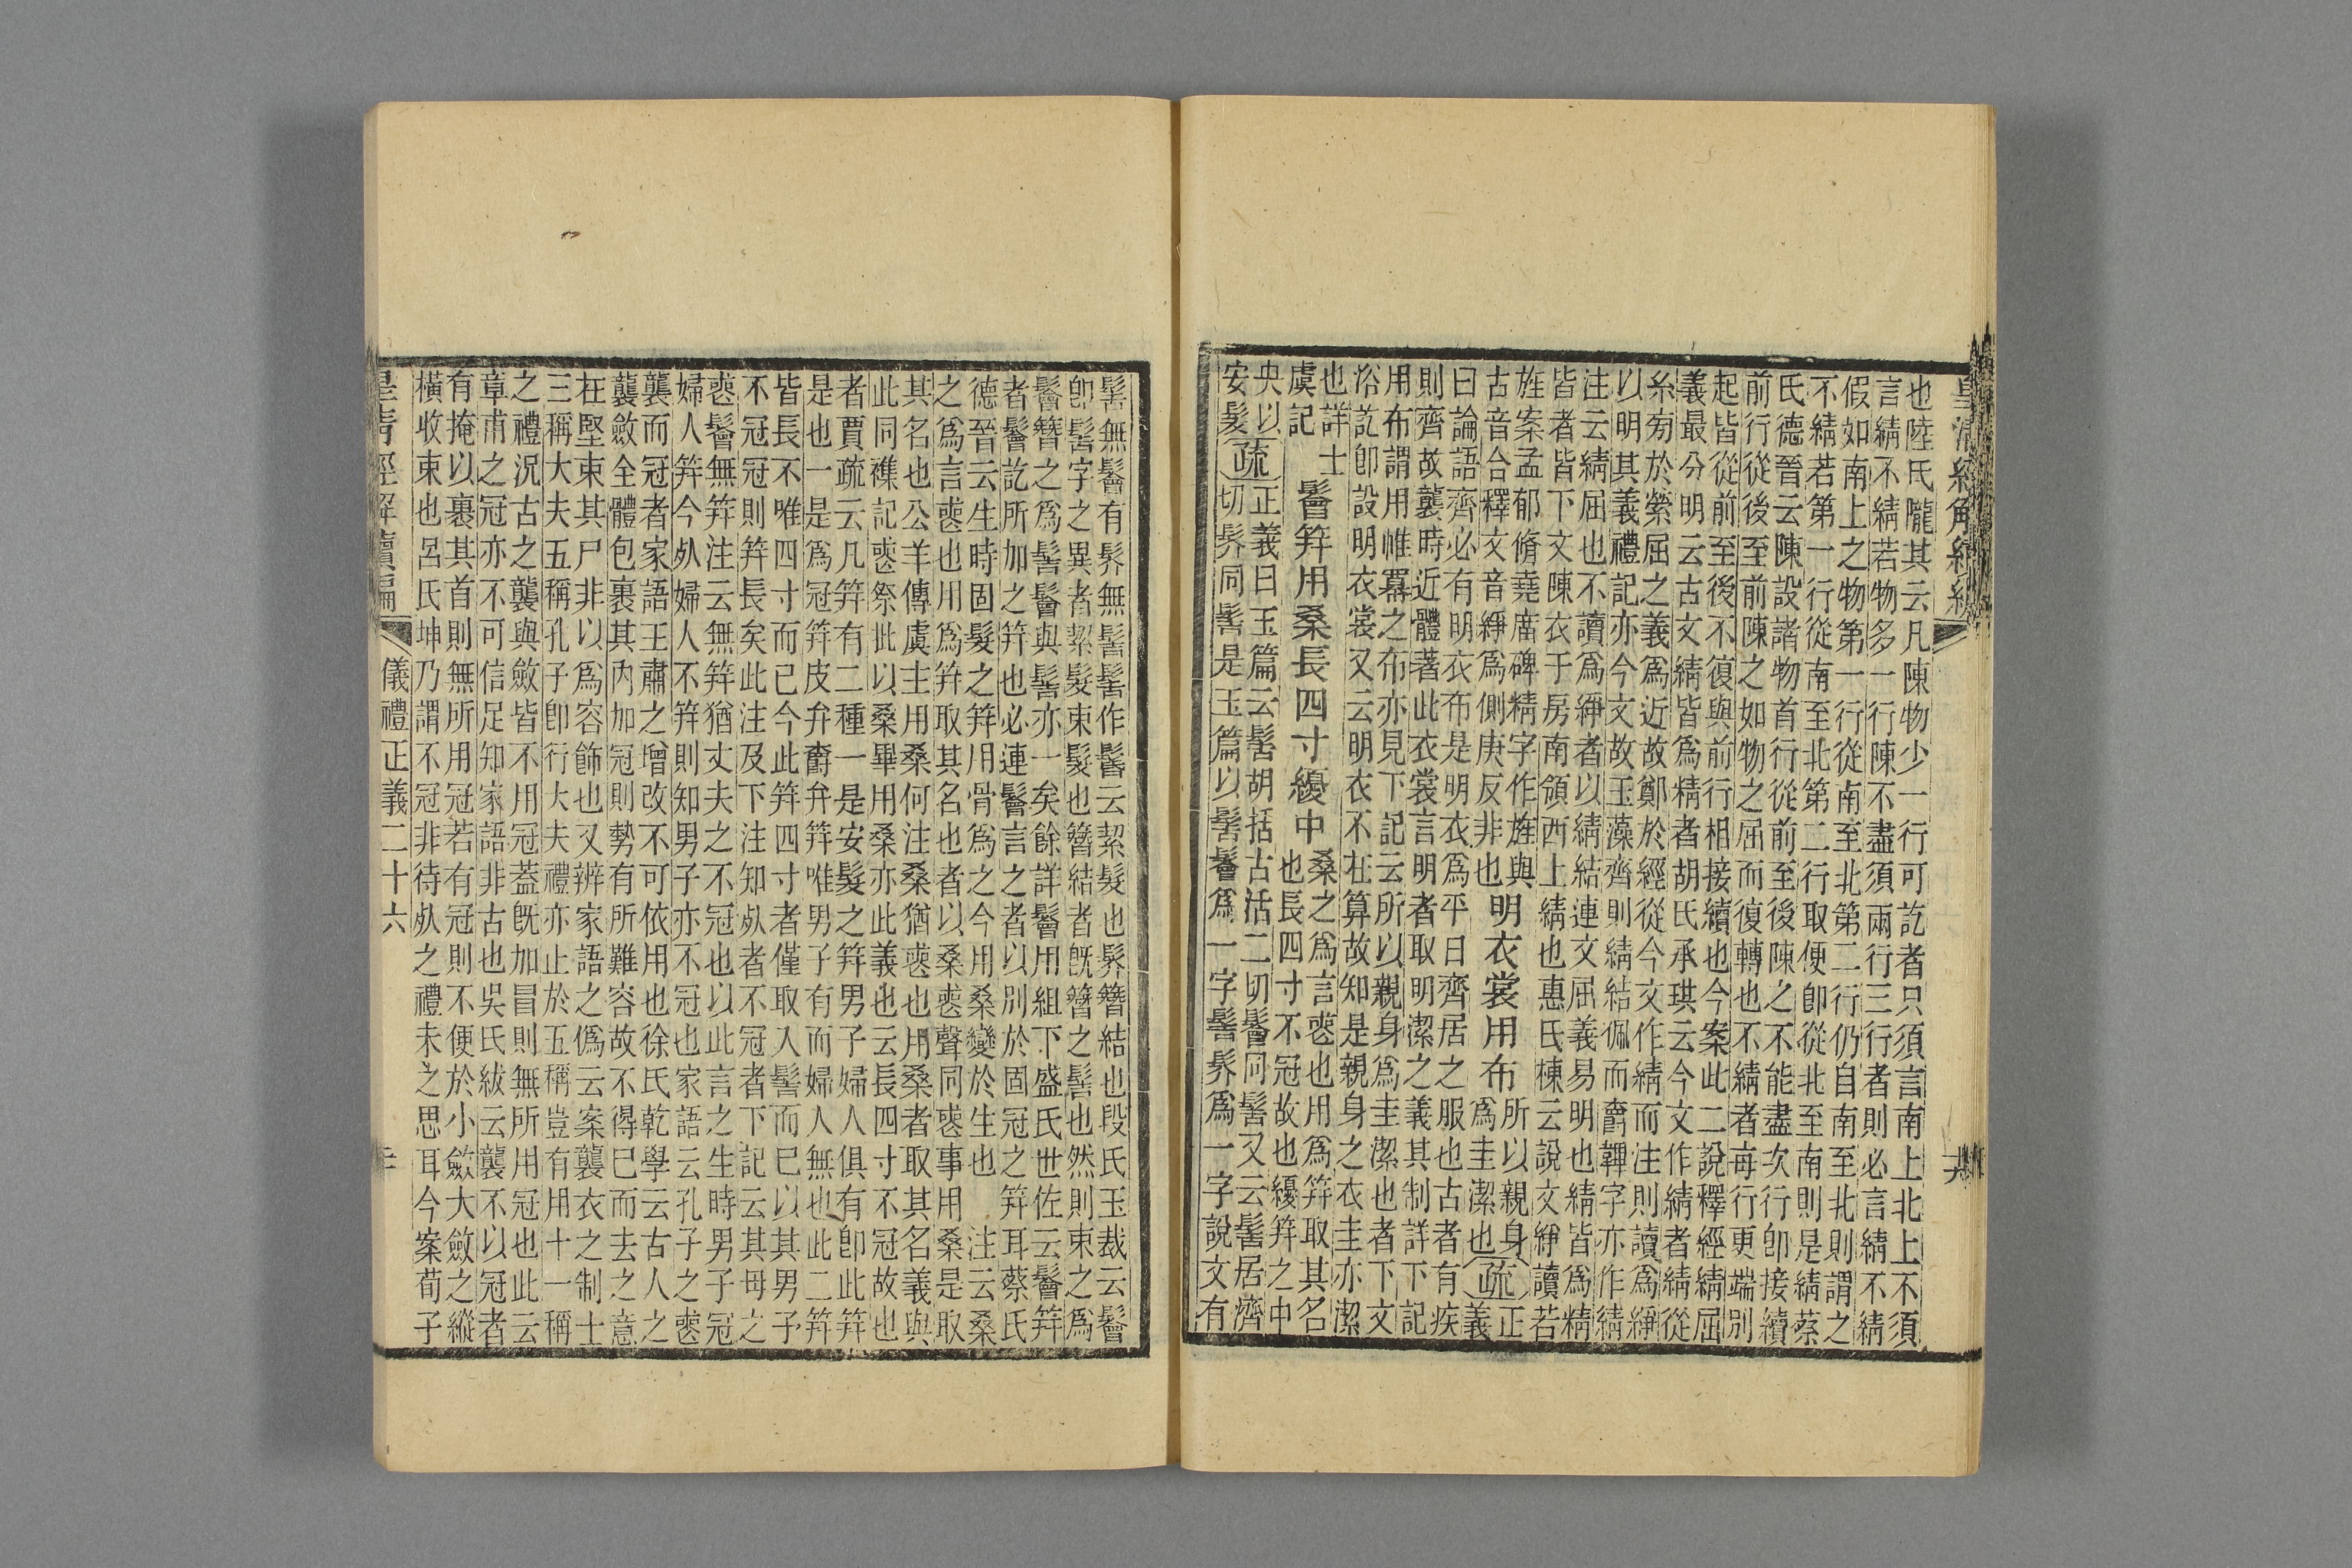 皇清經解續編
也陸氏隴其云凡陳物少一行可訖者只須言南上北上不須
言綪不綪若物多一行陳不盡須兩行三行者則必言綪不綪
假如南上之物第一行從南至北第二行仍自南至北則謂之
不綪若第一行從南至北第二行取便卽從北至南則是綪蔡
氏德晉云陳設諸物首行從前至後陳之不能盡次行卽接續
前行從後至前陳之如物之屈而復轉也不綪者每行更端別
起皆從前至後不復與前行相接續也今案此二說釋經綪屈
義最分明云古文綪皆爲精者胡氏承珙云今文作綪者綪從
糸旁於縈屈之義爲近故鄭於經從今文作綪而注則讀爲綪
以明其義禮記亦今文故玉藻齊則綪結佩而爵韠字亦作綪
注云綪屈也不讀爲絣者以綪結連文屈義易明也綪皆爲精
皆者皆下文陳衣于房南領西上綪也惠氏棟云說文絣讀若
旌案孟郁脩堯庿碑精字作旌與
古音合釋文音絣爲側庚反非也
明衣裳用布
所以親身
爲圭潔也
疏
正
義
曰論語齊必有明衣布是明衣爲平日齊居之服也古者有疾
則齊故襲時近體著此衣裳言明者取明潔之義其制詳下記
用布謂用帷幕之布亦見下記云所以親身爲圭潔也者下文
浴訖卽設明衣裳又云明衣不在算故知是親身之衣圭亦潔
也詳士
虞記
鬠笄用桑長四寸纋中
桑之爲言喪也用爲笄取其名
也長四寸不冠故也纋笄之中
央以
安髮
疏
正義曰玉篇云髺胡括古活二切鬠同髺又云髺居濟
切髻同髺是玉篇以髺鬠爲一字髺髻爲一字說文有
髺無鬠有髻無髺髺作鬠云絜髮也髻簪結也段氏玉裁云鬠
卽髺字之異者絜髮束髮也簪結者旣簪之髺也然則束之爲
鬠簪之爲髺鬠與髺亦一矣餘詳鬠用組下盛氏世佐云鬠笄
者鬠訖所加之笄也必連鬠言之者以別於固冠之笄耳蔡氏
德晉云生時固髮之笄用骨爲之今用桑變於生也　注云桑
之爲言喪也用爲笄取其名也者以桑喪聲同喪事用桑是取
其名也公羊傳虞主用桑何注桑猶喪也用桑者取其名義與
此同襍記喪祭枇以桑畢用桑亦此義也云長四寸不冠故也
者賈疏云凡笄有二種一是安髮之笄男子婦人俱有卽此笄
是也一是爲冠笄皮弁爵弁笄唯男子有而婦人無也此二笄
皆長不唯四寸而已今此笄四寸者僅取入髺而已以其男子
不冠冠則笄長矣此注及下注知死者不冠者下記云其母之
喪鬠無笄注云無笄猶丈夫之不冠也以此言之生時男子冠
婦人笄今死婦人不笄則知男子亦不冠也家語云孔子之喪
襲而冠者家語王肅之增改不可依用也徐氏乾學云古人之
襲斂全體包裹其內加冠則勢有所難容故不得已而去之意
在堅束其尸非以爲容飾也又辨家語之僞云案襲衣之制士
三稱大夫五稱孔子卽行大夫禮亦止於五稱豈有用十一稱
之禮況古之襲與斂皆不用冠蓋旣加冒則無所用冠也此云
章甫之冠亦不可信足知家語非古也吳氏紱云襲不以冠者
有掩以裹其首則無所用冠若有冠則不便於小斂大斂之縱
橫收束也呂氏坤乃謂不冠非待死之禮未之思耳今案荀子
儀禮正義二十六